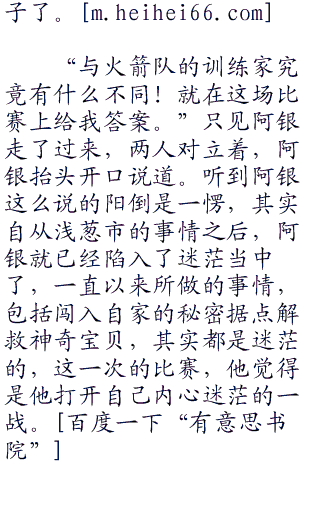 子了。[m.heihei66.com]
“与火箭队的训练家究
竟有什么不同！就在这场比
赛上给我答案。”只见阿银
走了过来，两人对立着，阿
银抬头开口说道。听到阿银
这么说的阳倒是一愣，其实
自从浅葱市的事情之后，阿
银就已经陷入了迷茫当中
了，一直以来所做的事情，
包括闯入自家的秘密据点解
救神奇宝贝，其实都是迷茫
的，这一次的比赛，他觉得
是他打开自己内心迷茫的一
战。[百度一下“有意思书
院”]